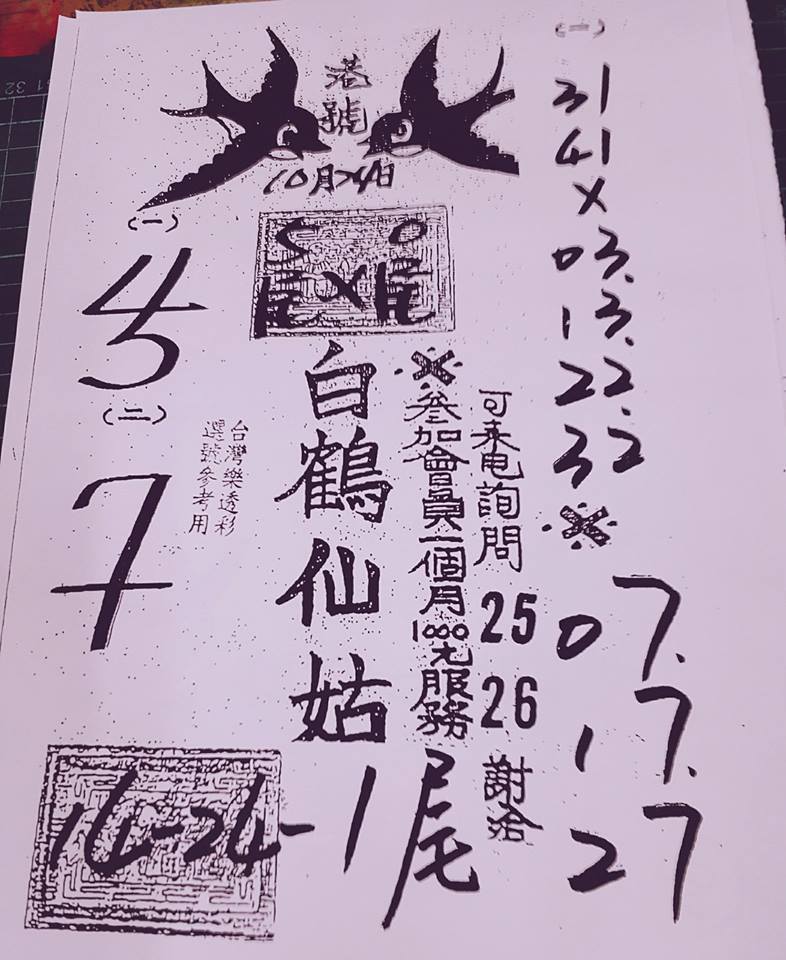 港號
10月24日
(一)
45
(二)
7
5 0
尾X尾
白鶴仙姑
台灣樂透彩
選號參考用
可来电詢問 25 26 謝洽
※參加會員一個月1000元服務
14-24-1尾
(一)
31
41
X
03.
13.
22.
32
※
07.
17.
27